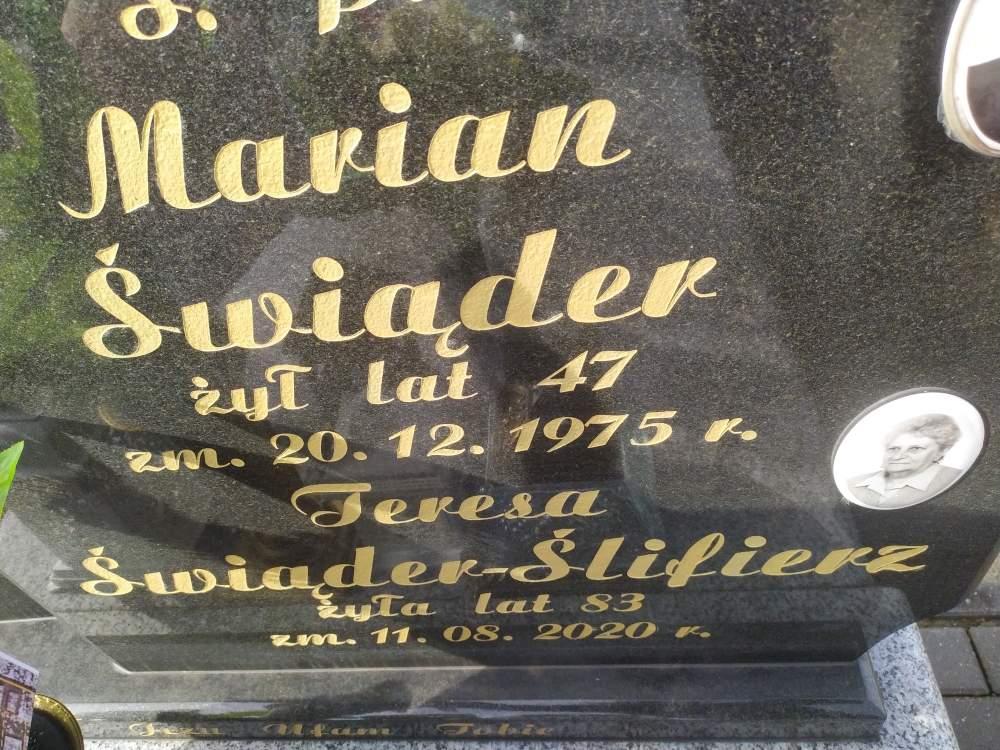 Ś. p.
Marian
Świąder
żył lat 47
zm. 20. 12. 1975 r.
Teresa
Świąder-Ślifierz
żyła lat 83
zm. 11. 08. 2020 r.
Jezu Ufam Tobie